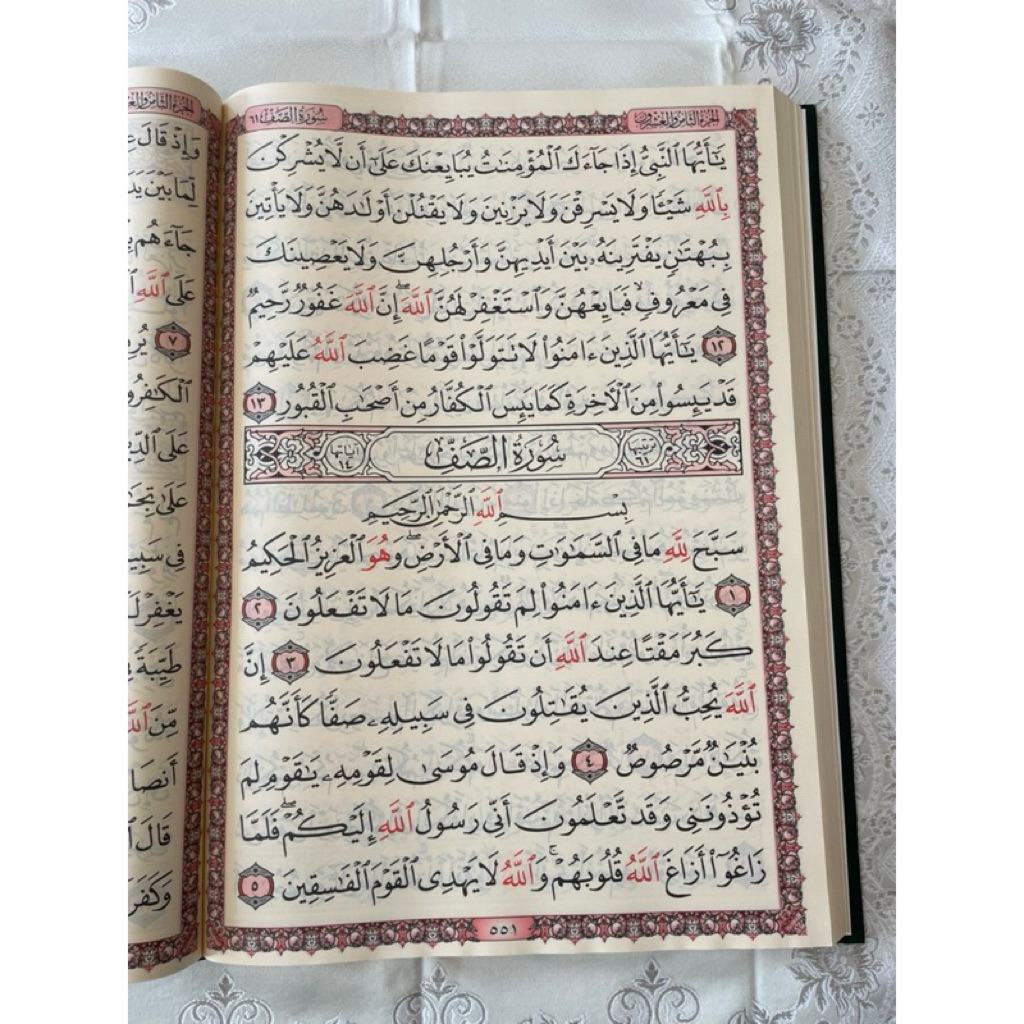 الجزء الثامن والعشرون
سورة الصف ٦١
يَـٰٓأَيُّهَا ٱلنَّبِىُّ إِذَا جَآءَكَ ٱلْمُؤْمِنَـٰتُ يُبَايِعْنَكَ عَلَىٰٓ أَن لَّا يُشْرِكْنَ
بِٱللَّهِ شَيْـًٔا وَلَا يَسْرِقْنَ وَلَا يَزْنِينَ وَلَا يَقْتُلْنَ أَوْلَـٰدَهُنَّ وَلَا يَأْتِينَ
بِبُهْتَـٰنٍ يَفْتَرِينَهُۥ بَيْنَ أَيْدِيهِنَّ وَأَرْجُلِهِنَّ وَلَا يَعْصِينَكَ
فِى مَعْرُوفٍ ۙ فَبَايِعْهُنَّ وَٱسْتَغْفِرْ لَهُنَّ ٱللَّهَ ۖ إِنَّ ٱللَّهَ غَفُورٌ رَّحِيمٌ
١٢ يَـٰٓأَيُّهَا ٱلَّذِينَ ءَامَنُوا۟ لَا تَتَوَلَّوْا۟ قَوْمًا غَضِبَ ٱللَّهُ عَلَيْهِمْ
قَدْ يَئِسُوا۟ مِنَ ٱلْـَٔاخِرَةِ كَمَا يَئِسَ ٱلْكُفَّارُ مِنْ أَصْحَـٰبِ ٱلْقُبُورِ ١٣
ترتيبها ٦١ سُورَةُ الصَّفِّ آياتها ١٤
بِسْمِ ٱللَّهِ ٱلرَّحْمَـٰنِ ٱلرَّحِيمِ
سَبَّحَ لِلَّهِ مَا فِى ٱلسَّمَـٰوَٰتِ وَمَا فِى ٱلْأَرْضِ ۖ وَهُوَ ٱلْعَزِيزُ ٱلْحَكِيمُ
١ يَـٰٓأَيُّهَا ٱلَّذِينَ ءَامَنُوا۟ لِمَ تَقُولُونَ مَا لَا تَفْعَلُونَ ٢
كَبُرَ مَقْتًا عِندَ ٱللَّهِ أَن تَقُولُوا۟ مَا لَا تَفْعَلُونَ ٣ إِنَّ
ٱللَّهَ يُحِبُّ ٱلَّذِينَ يُقَـٰتِلُونَ فِى سَبِيلِهِۦ صَفًّا كَأَنَّهُم
بُنْيَـٰنٌ مَّرْصُوصٌ ٤ وَإِذْ قَالَ مُوسَىٰ لِقَوْمِهِۦ يَـٰقَوْمِ لِمَ
تُؤْذُونَنِى وَقَد تَّعْلَمُونَ أَنِّى رَسُولُ ٱللَّهِ إِلَيْكُمْ ۖ فَلَمَّا
زَاغُوٓا۟ أَزَاغَ ٱللَّهُ قُلُوبَهُمْ ۚ وَٱللَّهُ لَا يَهْدِى ٱلْقَوْمَ ٱلْفَـٰسِقِينَ ٥
٥٥١
وَإِذْ قَالَ
لِّمَا بَيْنَ
جَآءَهُم
عَلَى ٱللَّهِ
٧
عَلَى
عَلَىٰ
فِى
يَغْفِرْ
طَيِّبَةً
مِّنَ
قَالَ